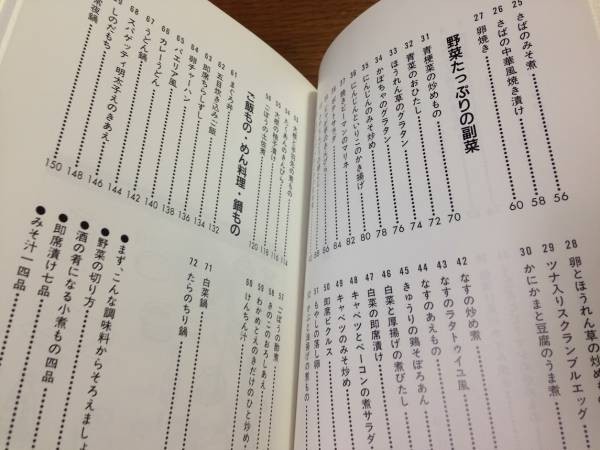 25 さばのみそ煮 56
26 さばの中華風焼き漬け 58
27 卵焼き 60
28 卵とほうれん草の炒め
29 ツナ入りスクランブルエッグ
30 かにかまと豆腐のうま煮
野菜たっぷりの副菜
31 青梗菜の炒めもの 70
32 青菜のおひたし 72
33 ほうれん草のグラタン 74
34 かぼちゃのグラタン 76
35 にんじんのみそ炒め 78
36 にんじんといりこのかき揚げ 80
37 焼きピーマンのマリネ
42 なすの炒め煮
43 なすのラタトゥイユ風
44 なすのあえもの
45 きゅうりの鶏そぼろあん
46 白菜と厚揚げの煮びたし
47 白菜の即席漬け
48 キャベツとベーコンの煮サラダ
49 キャベツのみそ炒め
50 即席ピクルス
51 もやしの落し卵
53 大根の柚子漬け
ごぼうの土佐煮 120
57 ごぼうの酢煮
58 きのこのおろしあえ
59 わかめとえのきだけのひと炒め
60 けんちん汁
ご飯もの・めん料理・鍋もの
61 まぐろ丼 132
62 五目炊き込みご飯 134
63 即席ちらしずし 136
64 卵チャーハン 138
65 パエリア風 140
66 カレーうどん 142
67 うどん鍋 144
68 スパゲッティ明太子えのきあえ 146
しのだもち 148
常夜鍋 150
71 白菜鍋
72 たらのちり鍋
●まず、こんな調味料からそろえましょ
●野菜の切り方
●酒の肴になる小煮もの四品
●即席漬け七品
●みそ汁一四品